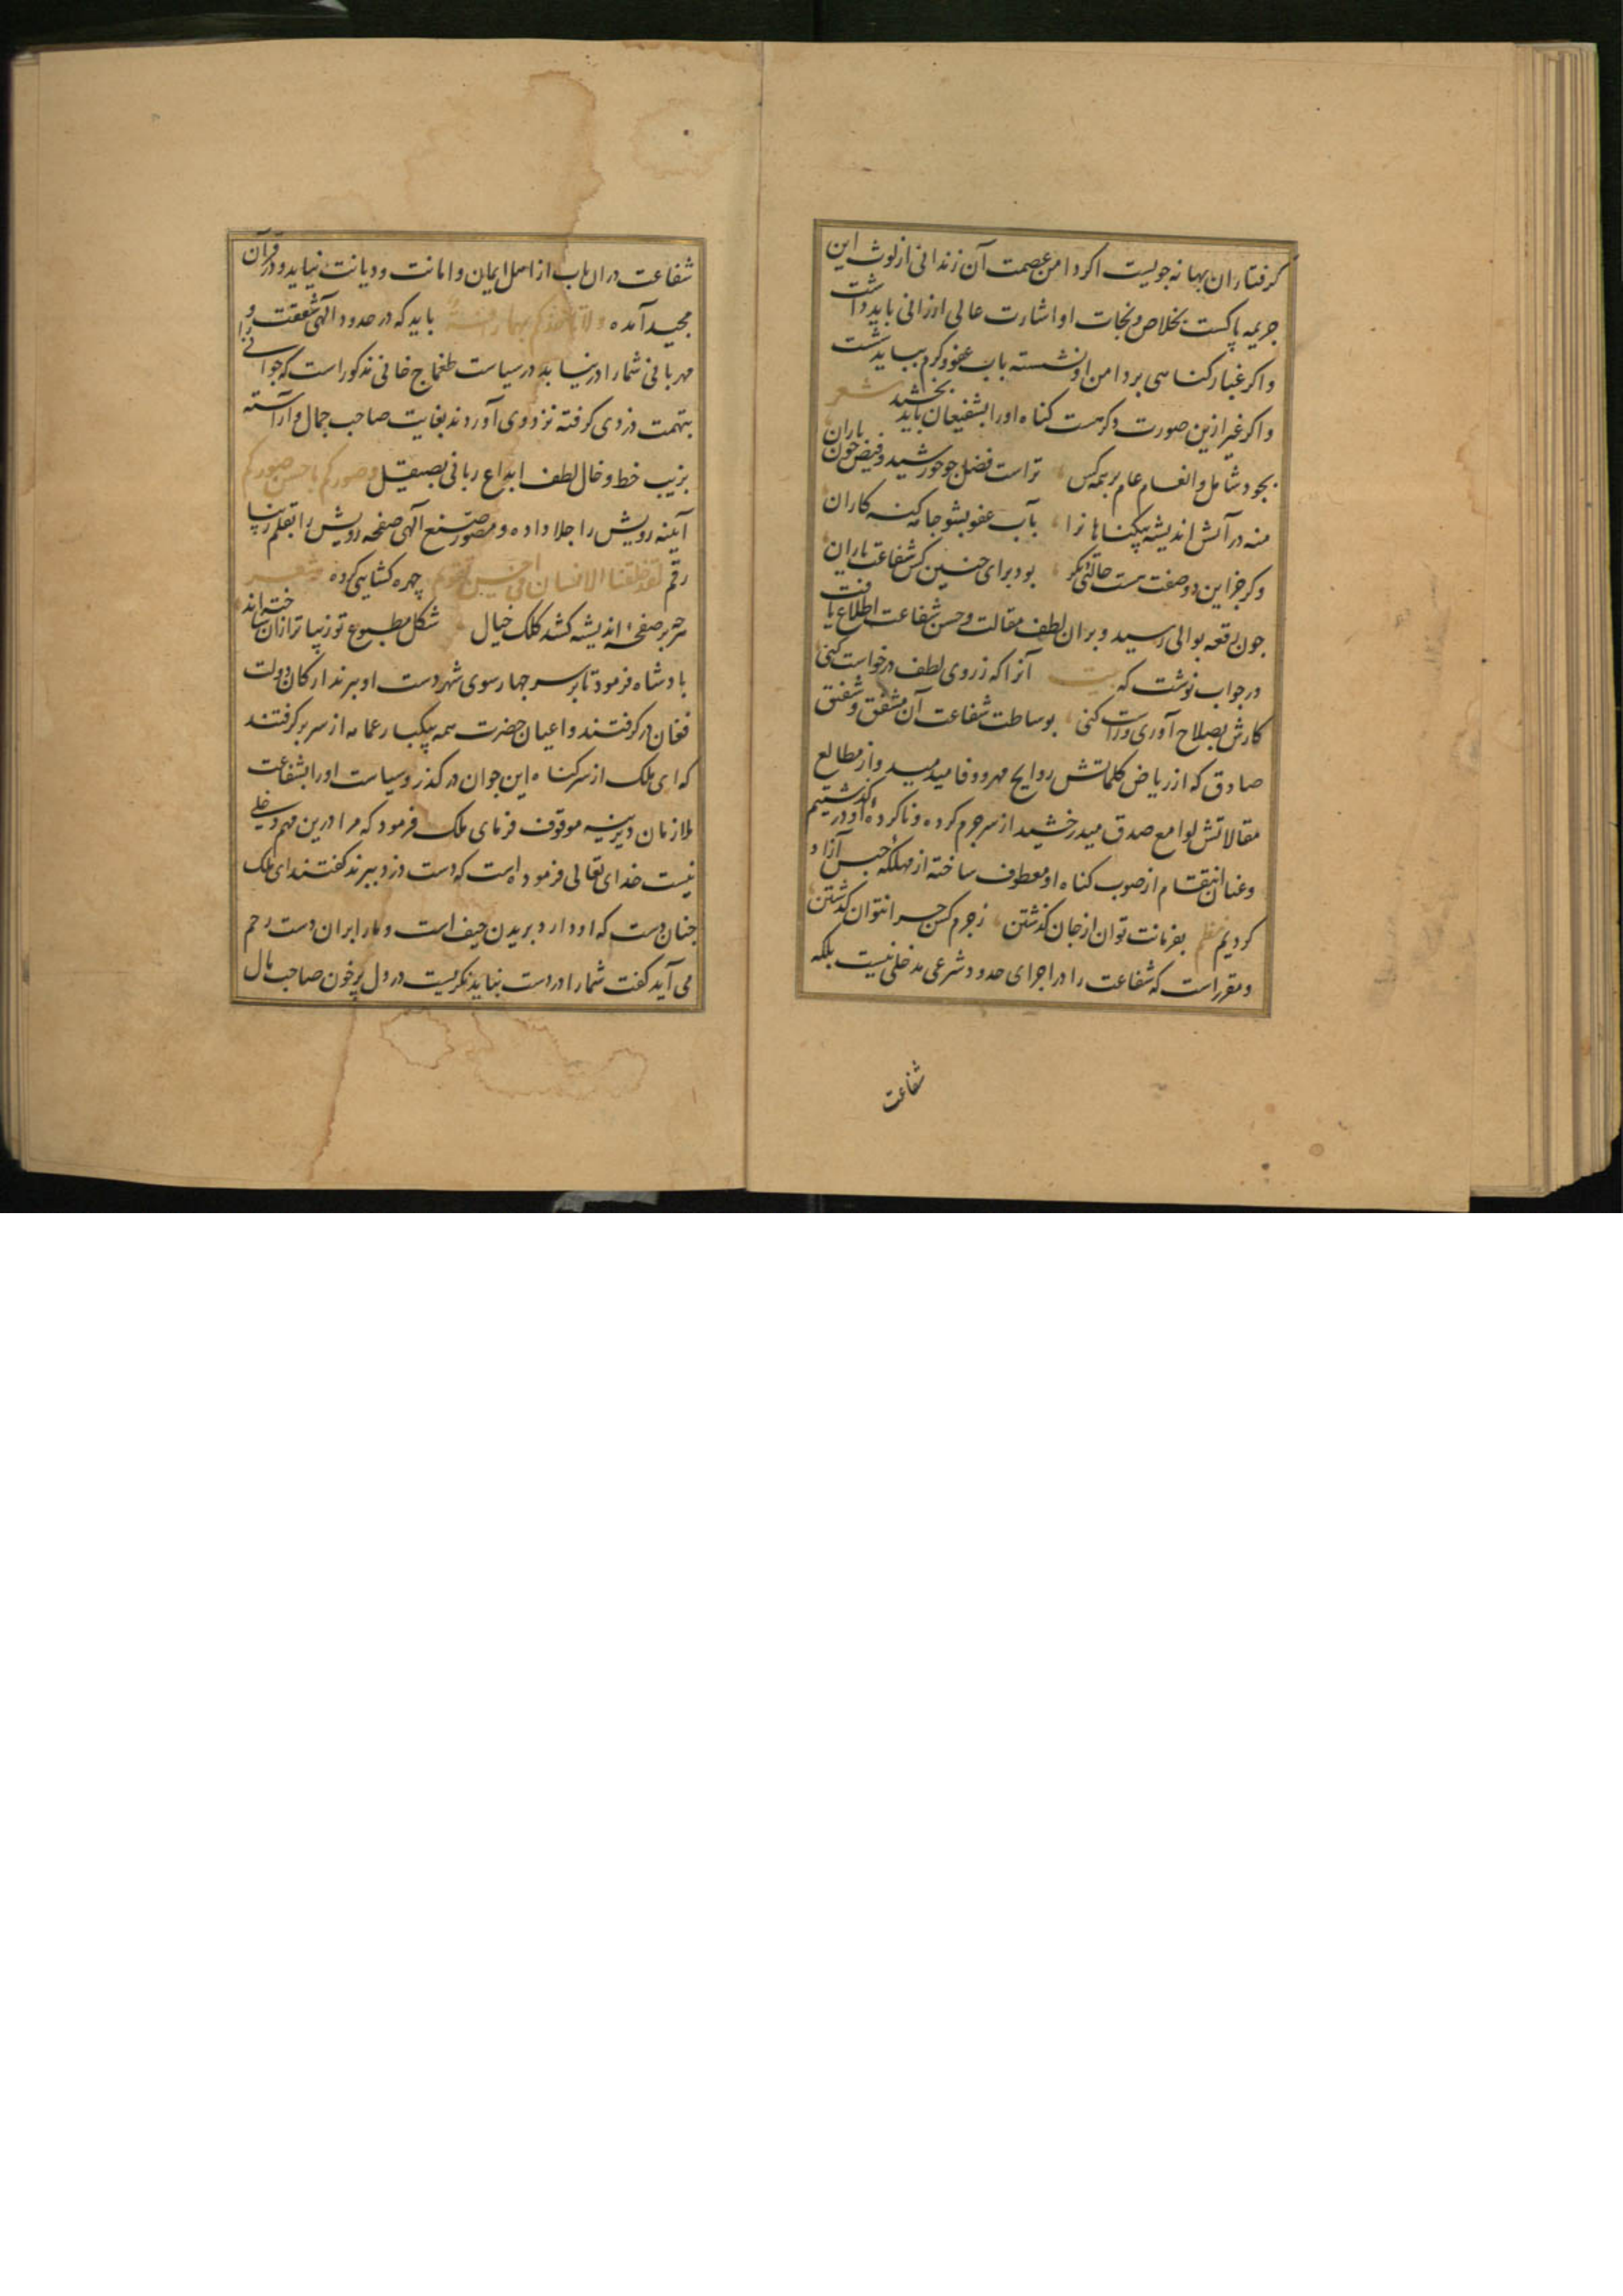 کرفتاران بهانه جویست اکر دامن عصمت آن زندانی از لوث این
جریمه پاکست بخلاص و نجات او اشارت عالی ارزانی باید داشت
و اکر غبار کناهی بر دامن او نشسته باب عفو و کرم بباید شست
و اکر غیر ازین صورت دکر هست کناه او را بشفیعان باید بخشید شعر
بجود شامل و انعام عام بر همه کس تراست فضل چو خورشید و فیض چون باران
منه در آتش اندیشه بیکناهانرا بآب عفو بشو جامه کنه کاران
و کر جز این دو صفت هست حالتی دکر بود برای چنین کس شفاعت یاران
چون رقعه بوالی رسید و بران لطف مقالت و حسن شفاعت اطلاع یافت
در جواب نوشت که بیت آنرا که ز روی لطف درخواست کنی
کارش بصلاح آوری و راست کنی بوساطت شفاعت آن مشفق و شفیق
صادق که از ریاض کلماتش روایح مهر و وفا میدمید و از مطالع
مقالاتش لوامع صدق میدرخشید از سر جرم کرده و ناکردهٔ او در کذشتیم
و عنان انتقام از صوب کناه او معطوف ساخته از مهلکهٔ حبس آزاد
کردیم نظم بفرمانت توان از جان کذشتن ز جرم کس چرا نتوان کذشتن
و مقرر است که شفاعت را در اجرای حدود شرعی مدخلی نیست بلکه
شفاعت
شفاعت دران باب از اهل ایمان و امانت و دیانت نیاید و در قرآن
مجید آمده ولا تاخذکم بهما رافة باید که در حدود آلهی شفقت و
مهربانی شما را در نیابد در سیاست طغماج خانی مذکور است که جوانی را
بتهمت دزدی کرفته نزد وی آوردند بغایت صاحب جمال و آراسته
بزیب خط و خال لطف ابداع ربانی بصیقل وصورکم فاحسن صورکم
آیینه رویش را جلا داده و مصور صنع آلهی صفحه رویش را بقلم زیبا
رقم لقد خلقنا الانسان فی احسن تقویم چهره کشایی کرده شعر
هرچه بر صفحهٔ اندیشه کشد کلک خیال شکل مطبوع تو زیباتر ازان ساخته‌اند
پادشاه فرمود تا بر سر چهار سوی شهر دست او ببرند ارکان دولت
فغان در کرفتند و اعیان حضرت همه بیکبار عمامه از سر بر کرفتند
که ای ملک از سر کناه این جوان در کذر و سیاست او را بشفاعت
ملازمان دیرینه موقوف فرمای ملک فرمود که مرا درین مهم دخلی
نیست خدای تعالی فرموده است که دست دزد ببرند کفتند ای ملک
چنان دست که او دارد بریدن حیف است و ما را بران دست رحم
می آید کفت شما را در دست نباید نکریست در دل پر خون صاحب مال